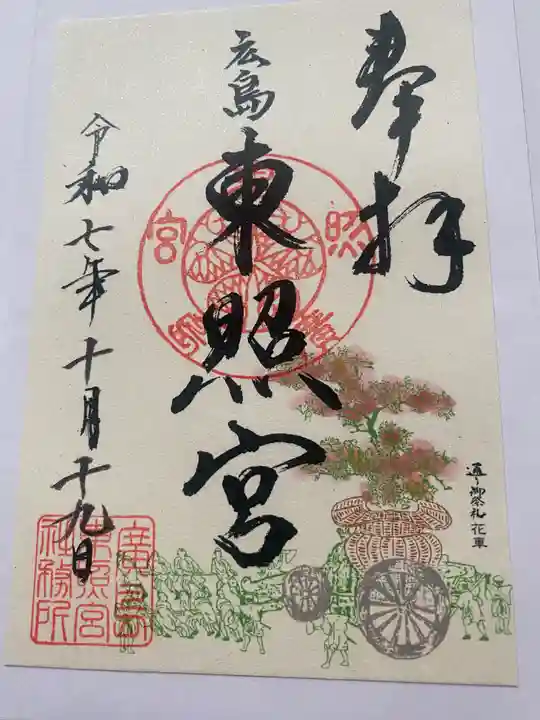 奉拝
広島
東照宮
令和七年十月十九日
通り御祭礼花車
廣島
東照宮
社務所